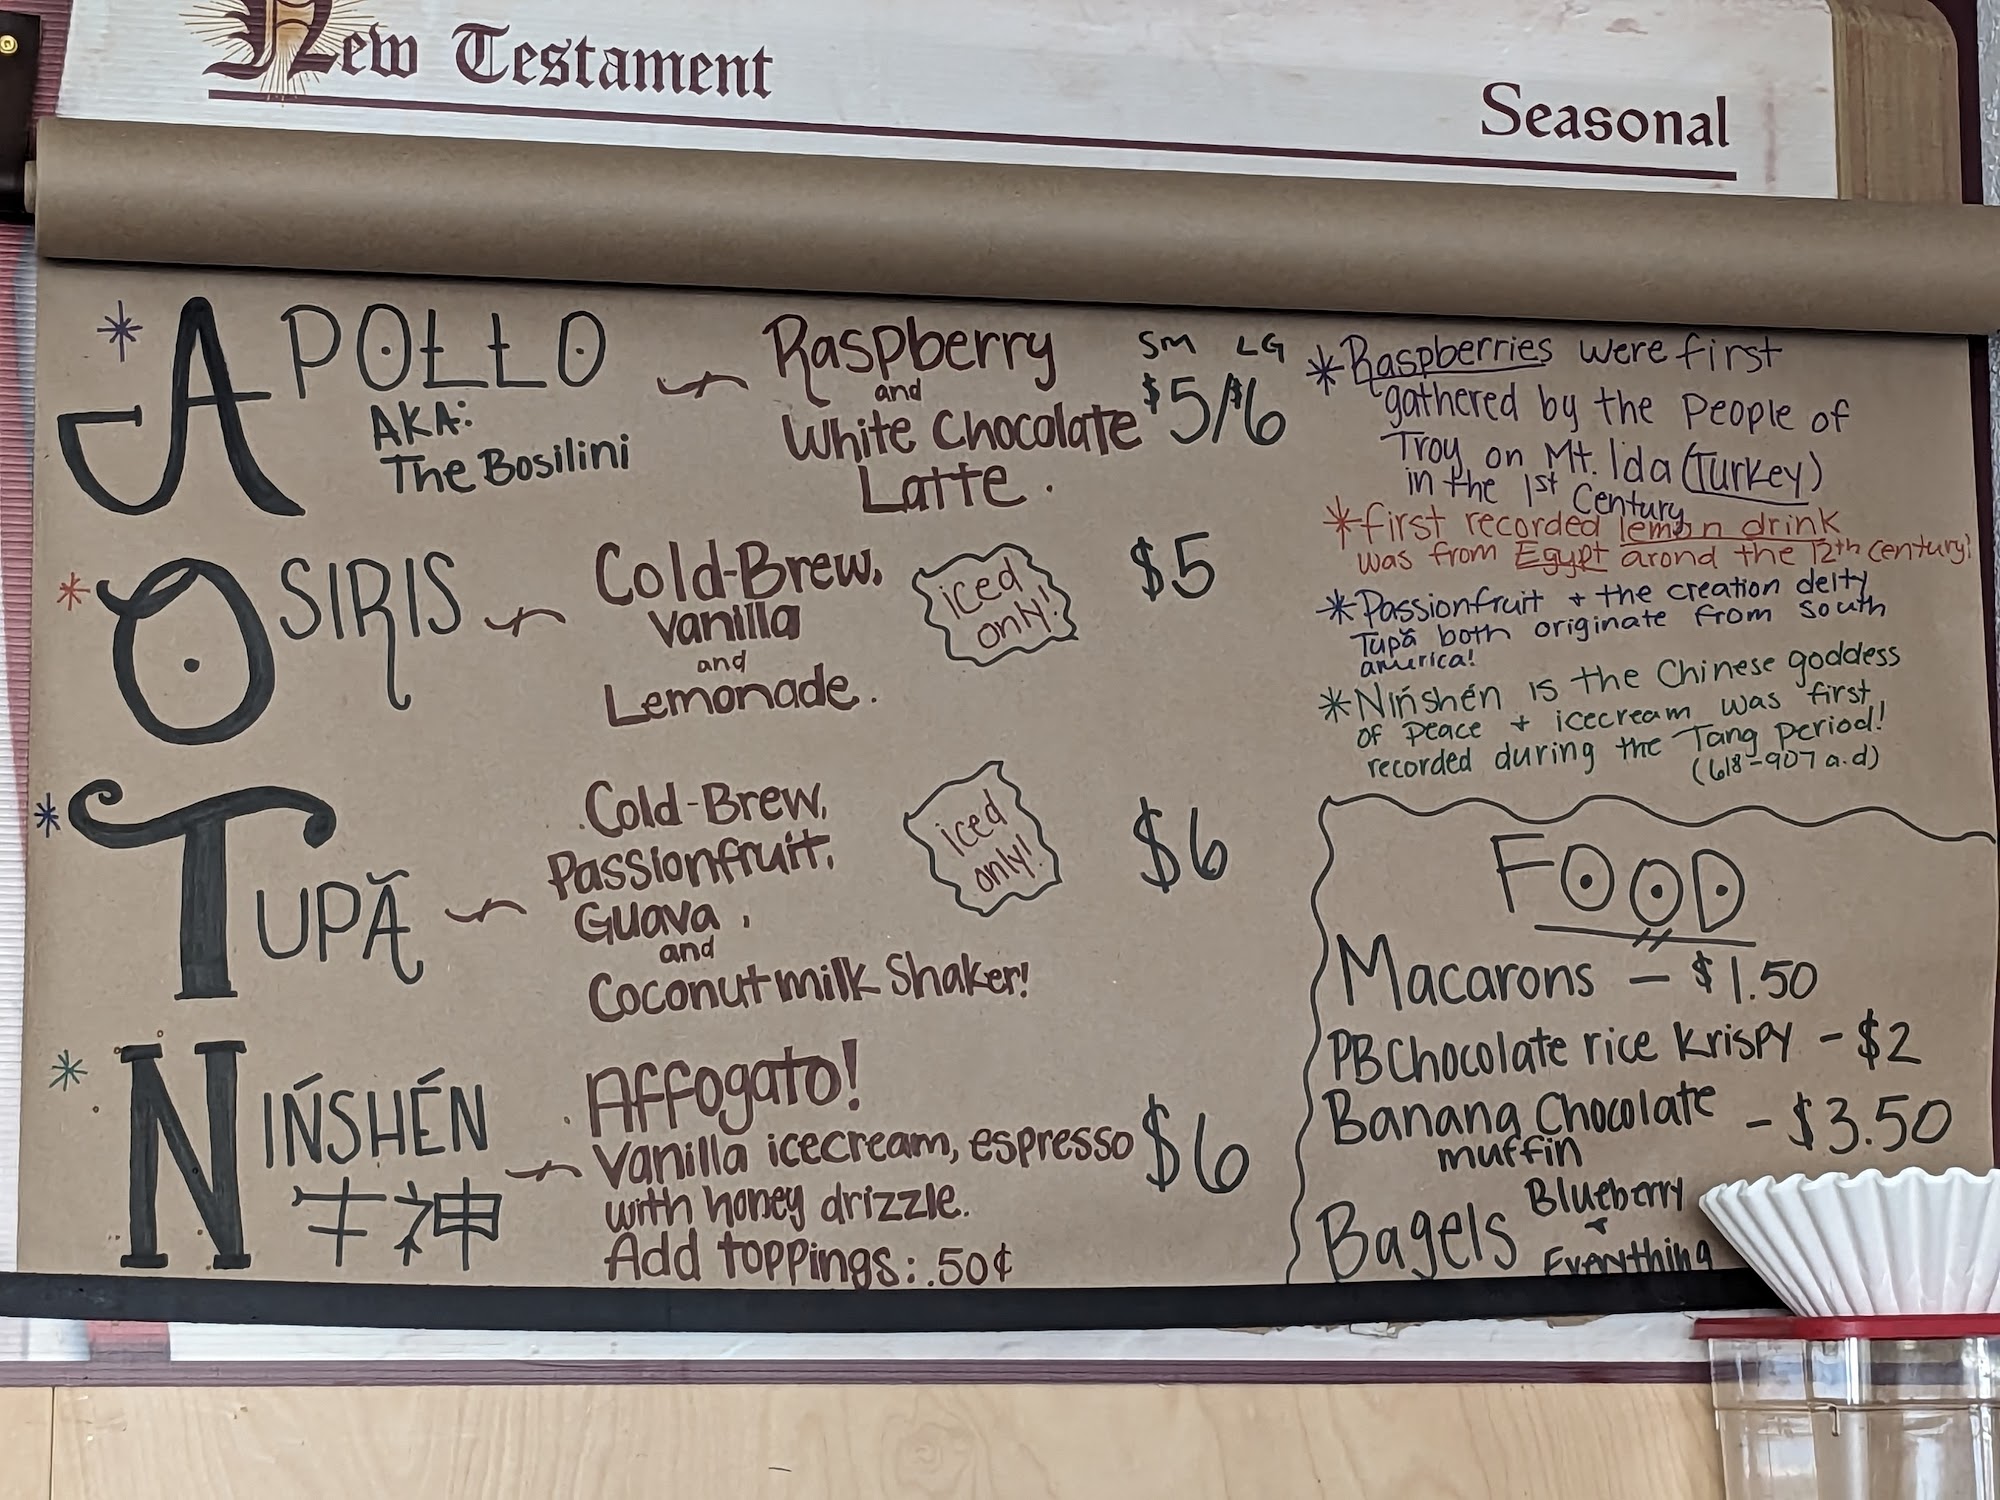 New Testament
Seasonal
*APOLLO
AKA:
The Bosilini
Raspberry
and
White Chocolate
Latte.
SM LG
$5/$6
*OSIRIS
Cold-Brew,
vanilla
and
Lemonade.
iced
only!
$5
*TUPÃ
Cold-Brew,
Passionfruit,
Guava,
and
Coconutmilk Shaker!
iced
only!
$6
*NIŃSHÉN
Affogato!
vanilla icecream, espresso
with honey drizzle.
Add toppings: .50¢
$6
*Raspberries were first
gathered by the People of
Troy on Mt. Ida (Turkey)
in the 1st Century
*first recorded lemon drink
was from Egypt arond the 12th century!
*Passionfruit + the creation deity
Tupã both originate from south
america!
*Nińshén is the Chinese goddess
of peace + icecream was first
recorded during the Tang period!
(618-907 a.d)
FOOD
Macarons - $1.50
PB Chocolate rice Krispy - $2
Banana Chocolate - $3.50
muffin
Bagels Blueberry
+
Everything